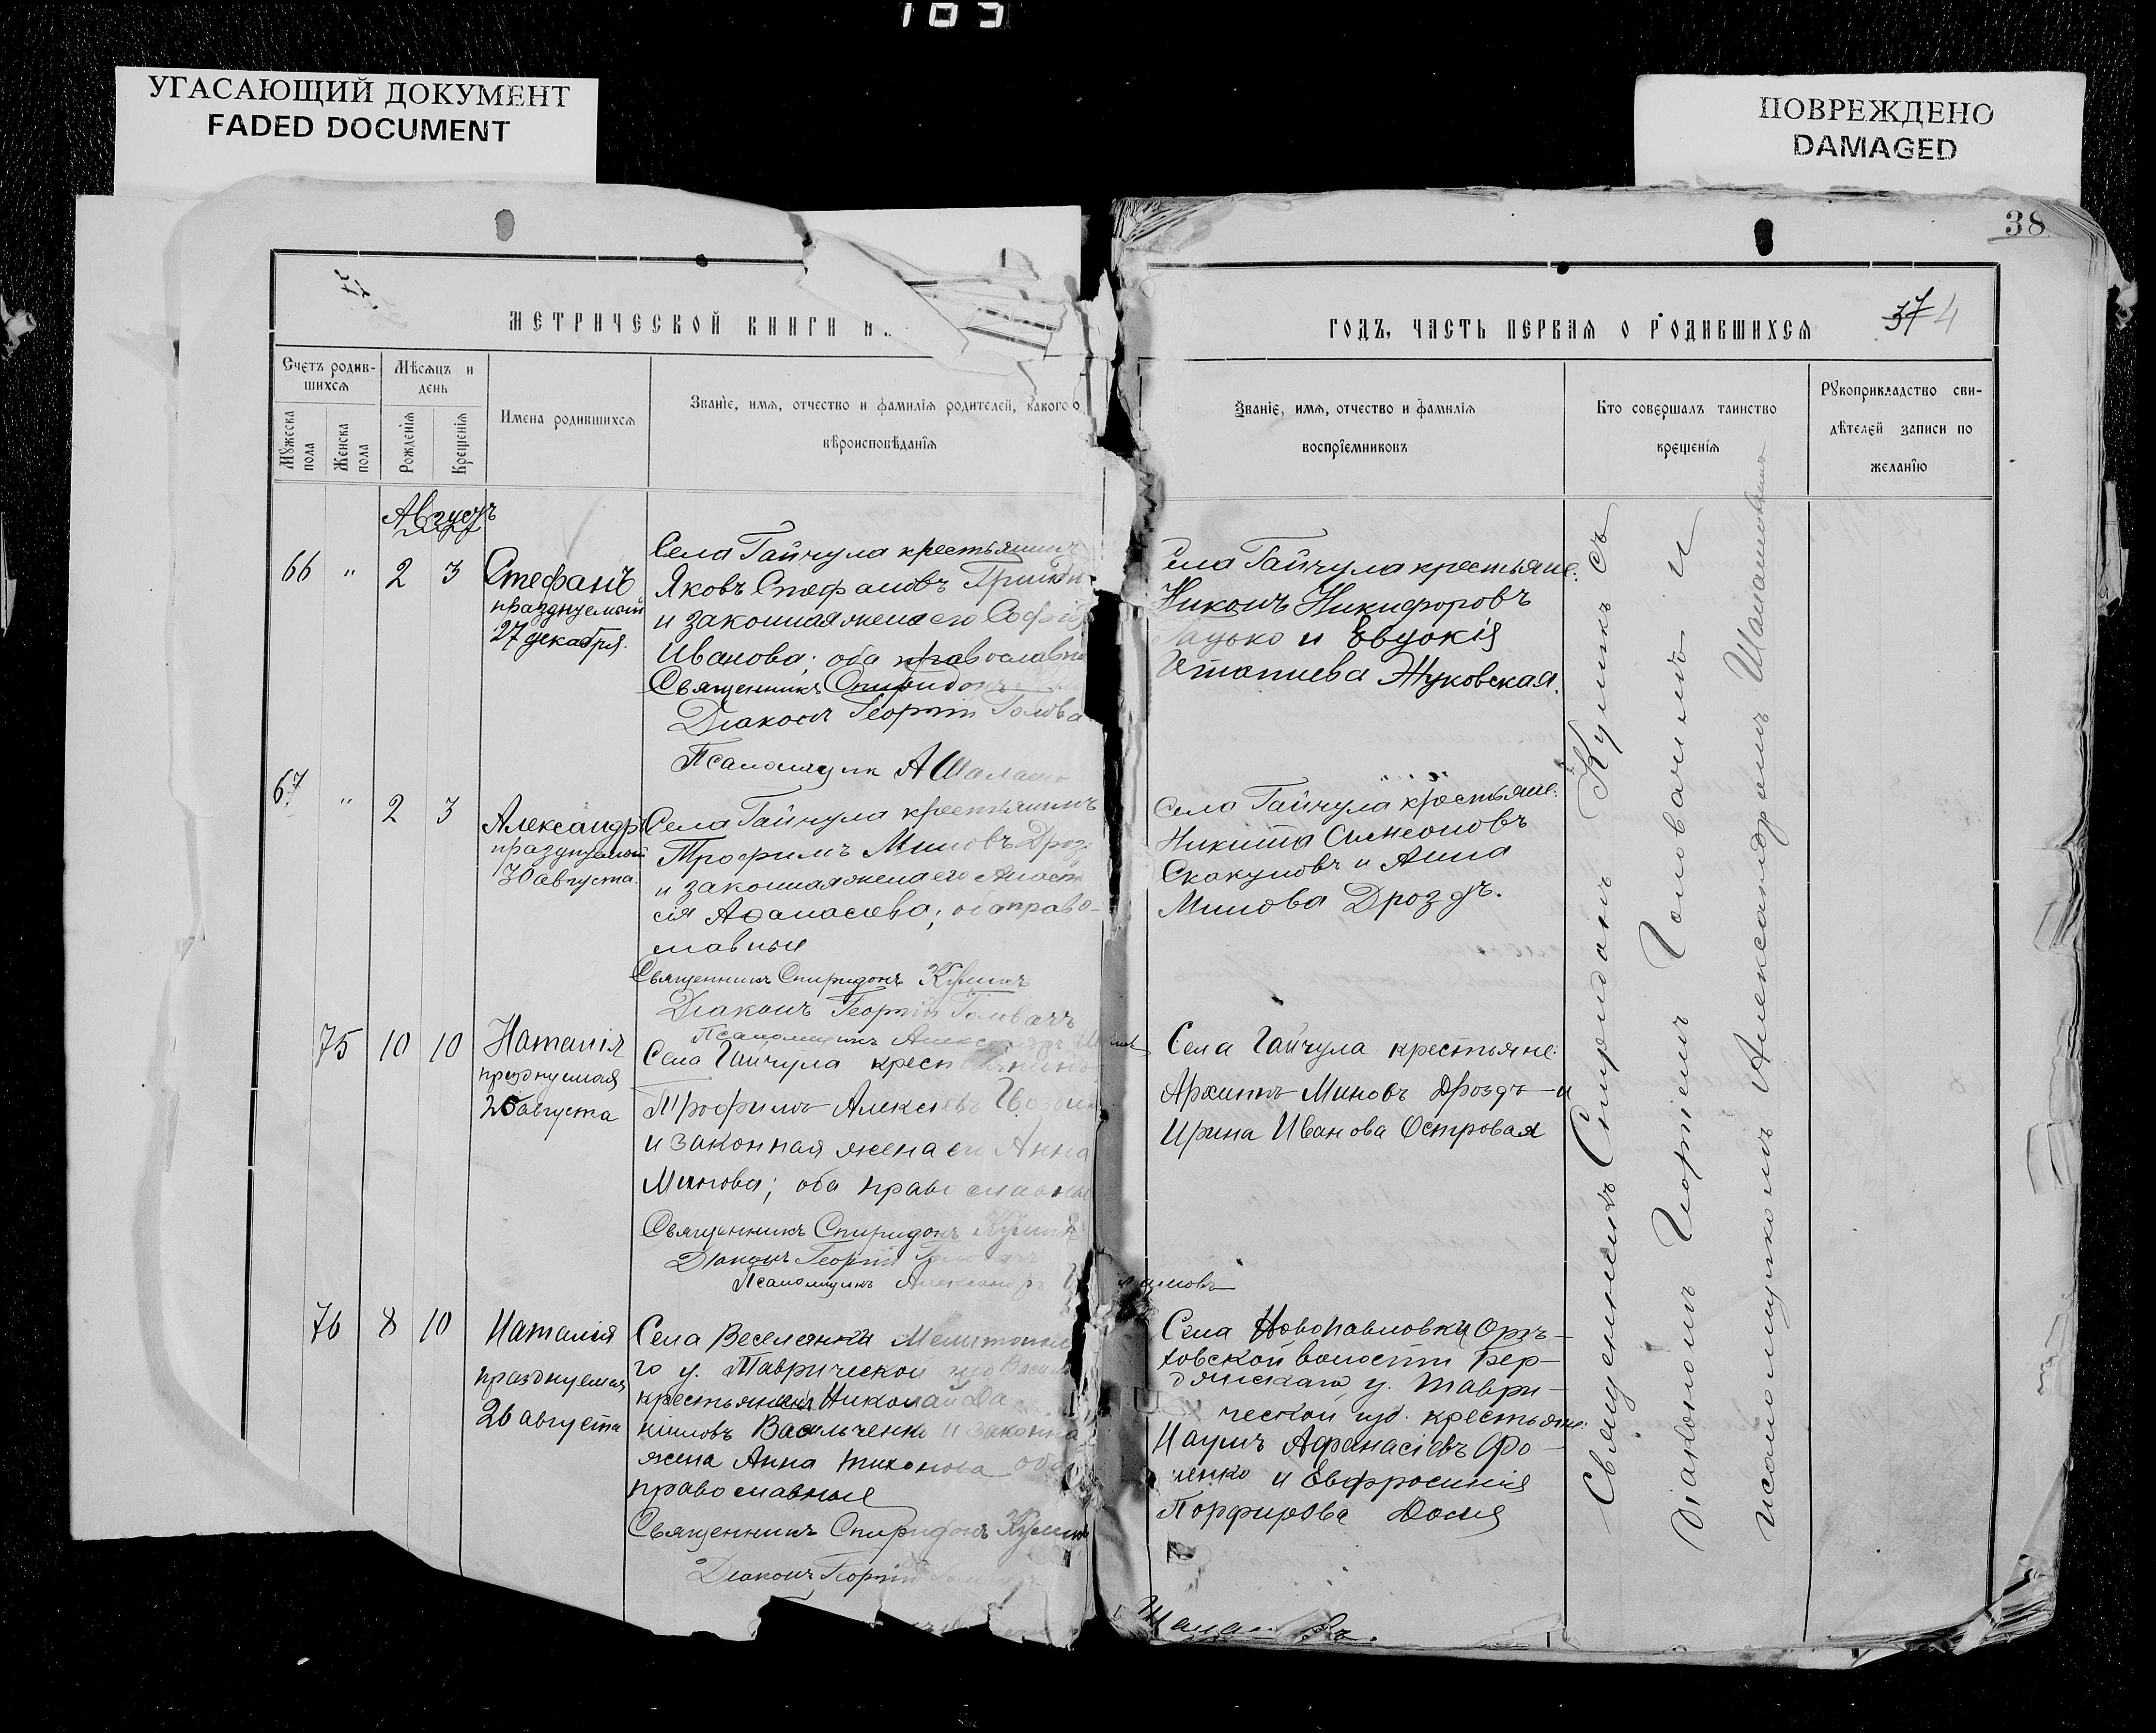 165
УГАСАЮЩИЙ ДОКУМЕНТ
FADED DOCUMENT
ПОВРЕЖДЕНО
DAMAGED
38
374
МЕТРИЧЕСКОЙ КНИГИ НА
ГОДЪ, ЧАСТЬ ПЕРВАЯ О РОДИВШИХСЯ
Счетъ родив-
шихся
Мѣсяцъ и
день
Мужеска
пола
Женска
пола
Рожденія
Крещенія
Имена родившихся
Званіе, имя, отчество и фамилія родителей, какого
вѣроисповѣданія
Званіе, имя, отчество и фамилія
воспріемниковъ
Кто совершалъ таинство
крещенія
Рукоприкладство сви-
дѣтелей записи по
желанію
Августъ
66 " 2 3
Стефанъ
празднуемый
27 декабря.
Села Гайчула крестьянинъ
Яковъ Стефановъ
и законная жена его Софія
Иванова; оба православн
Священникъ Спиридонъ
Діаконъ Георгій Голова
Псаломщик А Шалам
Села Гайчула крестьяне:
Никонъ Никифоровъ
и Евдокія
Игнатиева Жуковская.
67 " 2 3
Александръ
празднуемый
30 августа.
Села Гайчула крестьянинъ
Трофимъ Миновъ Дроз
и законная жена его Анаста
сія Афанасіева; оба право-
славные
Священникъ Спиридонъ Куликъ
Діаконъ Георгій Головачъ
Псаломщикъ Александръ
Села Гайчула крестьяне:
Никита Симеоновъ
Скакуновъ и Анна
Минова Дроздъ.
75 10 10
Наталія
празднуемая
26 августа
Села Гайчула крестьянинъ
Трофимъ Алексіевъ
и законная жена его Анна
Минова; оба православные
Священникъ Спиридонъ Куликъ
Діаконъ Георгій Головачъ
Псаломщикъ Александръ
Села Гайчула крестьяне:
Архипъ Миновъ Дроздъ и
Ирина Иванова Островая
76 8 10
Наталія
празднуемая
26 августа
Села Веселянки Мелитополь
го у. Таврической губ
крестьянинъ Николай Да
ніиловъ Васильченко и законна
жена Анна Тихонова оба
православные
Священникъ Спиридонъ Кулик
Діаконъ Георгій
Села Новопавловки Орѣ-
ховской волости Бер-
дянскаго у. Таври-
ческой губ. крестьяне:
Наумъ Афанасіевъ Фо-
менко и Евфросинія
Порфирова
Священникъ Спиридонъ Куликъ съ
Діакономъ Георгіемъ Головачемъ и
псаломщикомъ Александромъ Шаламовымъ